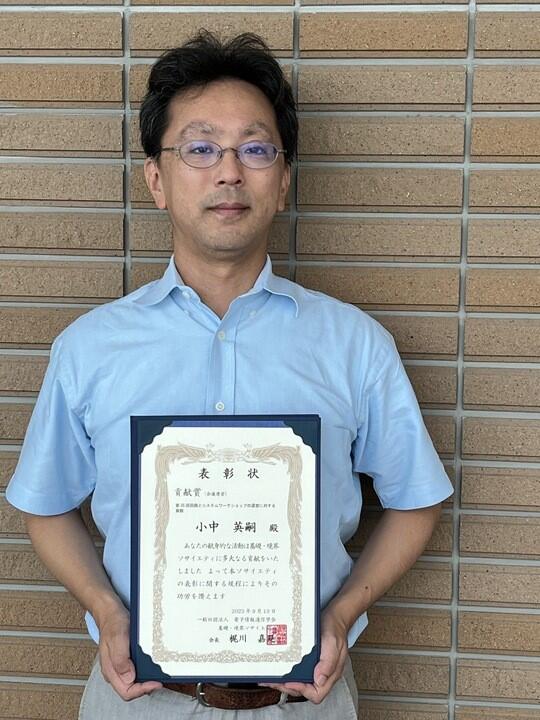 表彰状
貢献賞 (会議運営)
貢献
小中 英嗣 殿
あなたの献身的な活動は基礎・境界
ソサイエティに多大なる貢献をいた
しました よって本ソサイエティ
の表彰に関する規程によりその
功労を讃えます
2023年9月13日
一般社団法人 電子情報通信学会
基礎・境界ソサイエティ
会長 梶川 嘉延